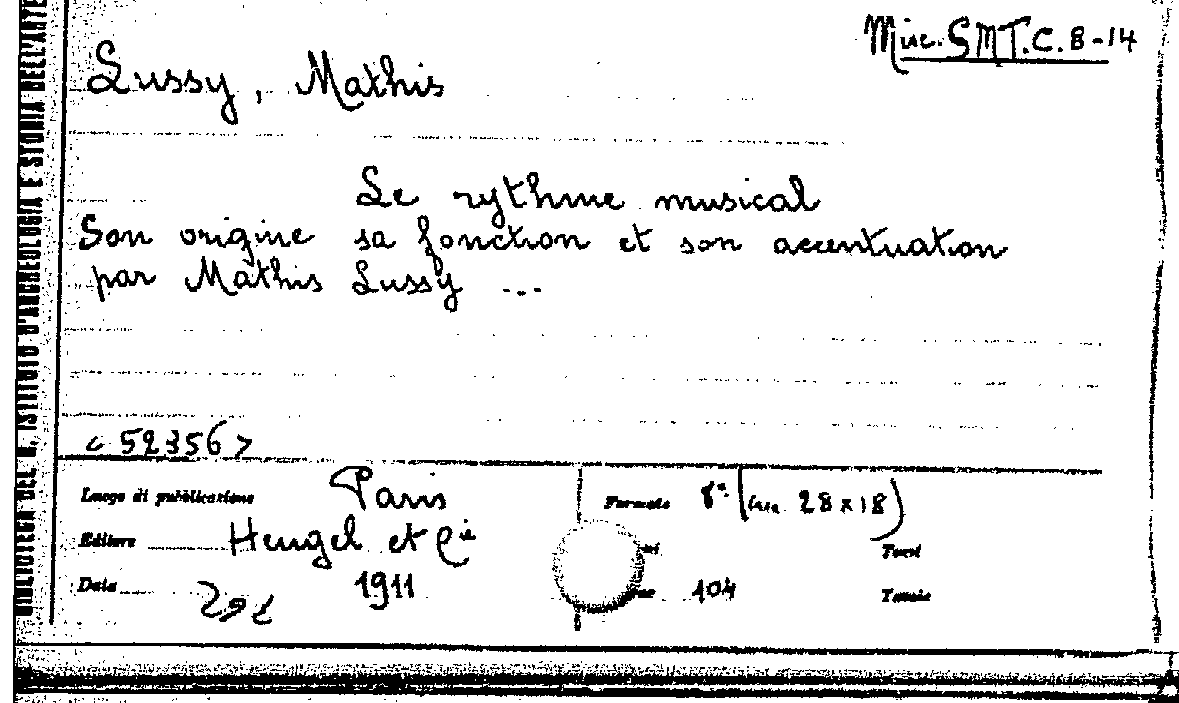 Misc. SMT.C.8-14
Lussy, Mathis
Le rythme musical
Son origine sa fonction et son accentuation
par Mathis Lussy ...
<52356>
Luogo di pubblicazione Paris
Formato 8° (cm. 28x18)
Editore Heugel et Cie
Tomi
Data 1911
104
Tavole
BIBLIOTECA DEL R. ISTITUTO D'ARCHEOLOGIA E STORIA DELL'ARTE